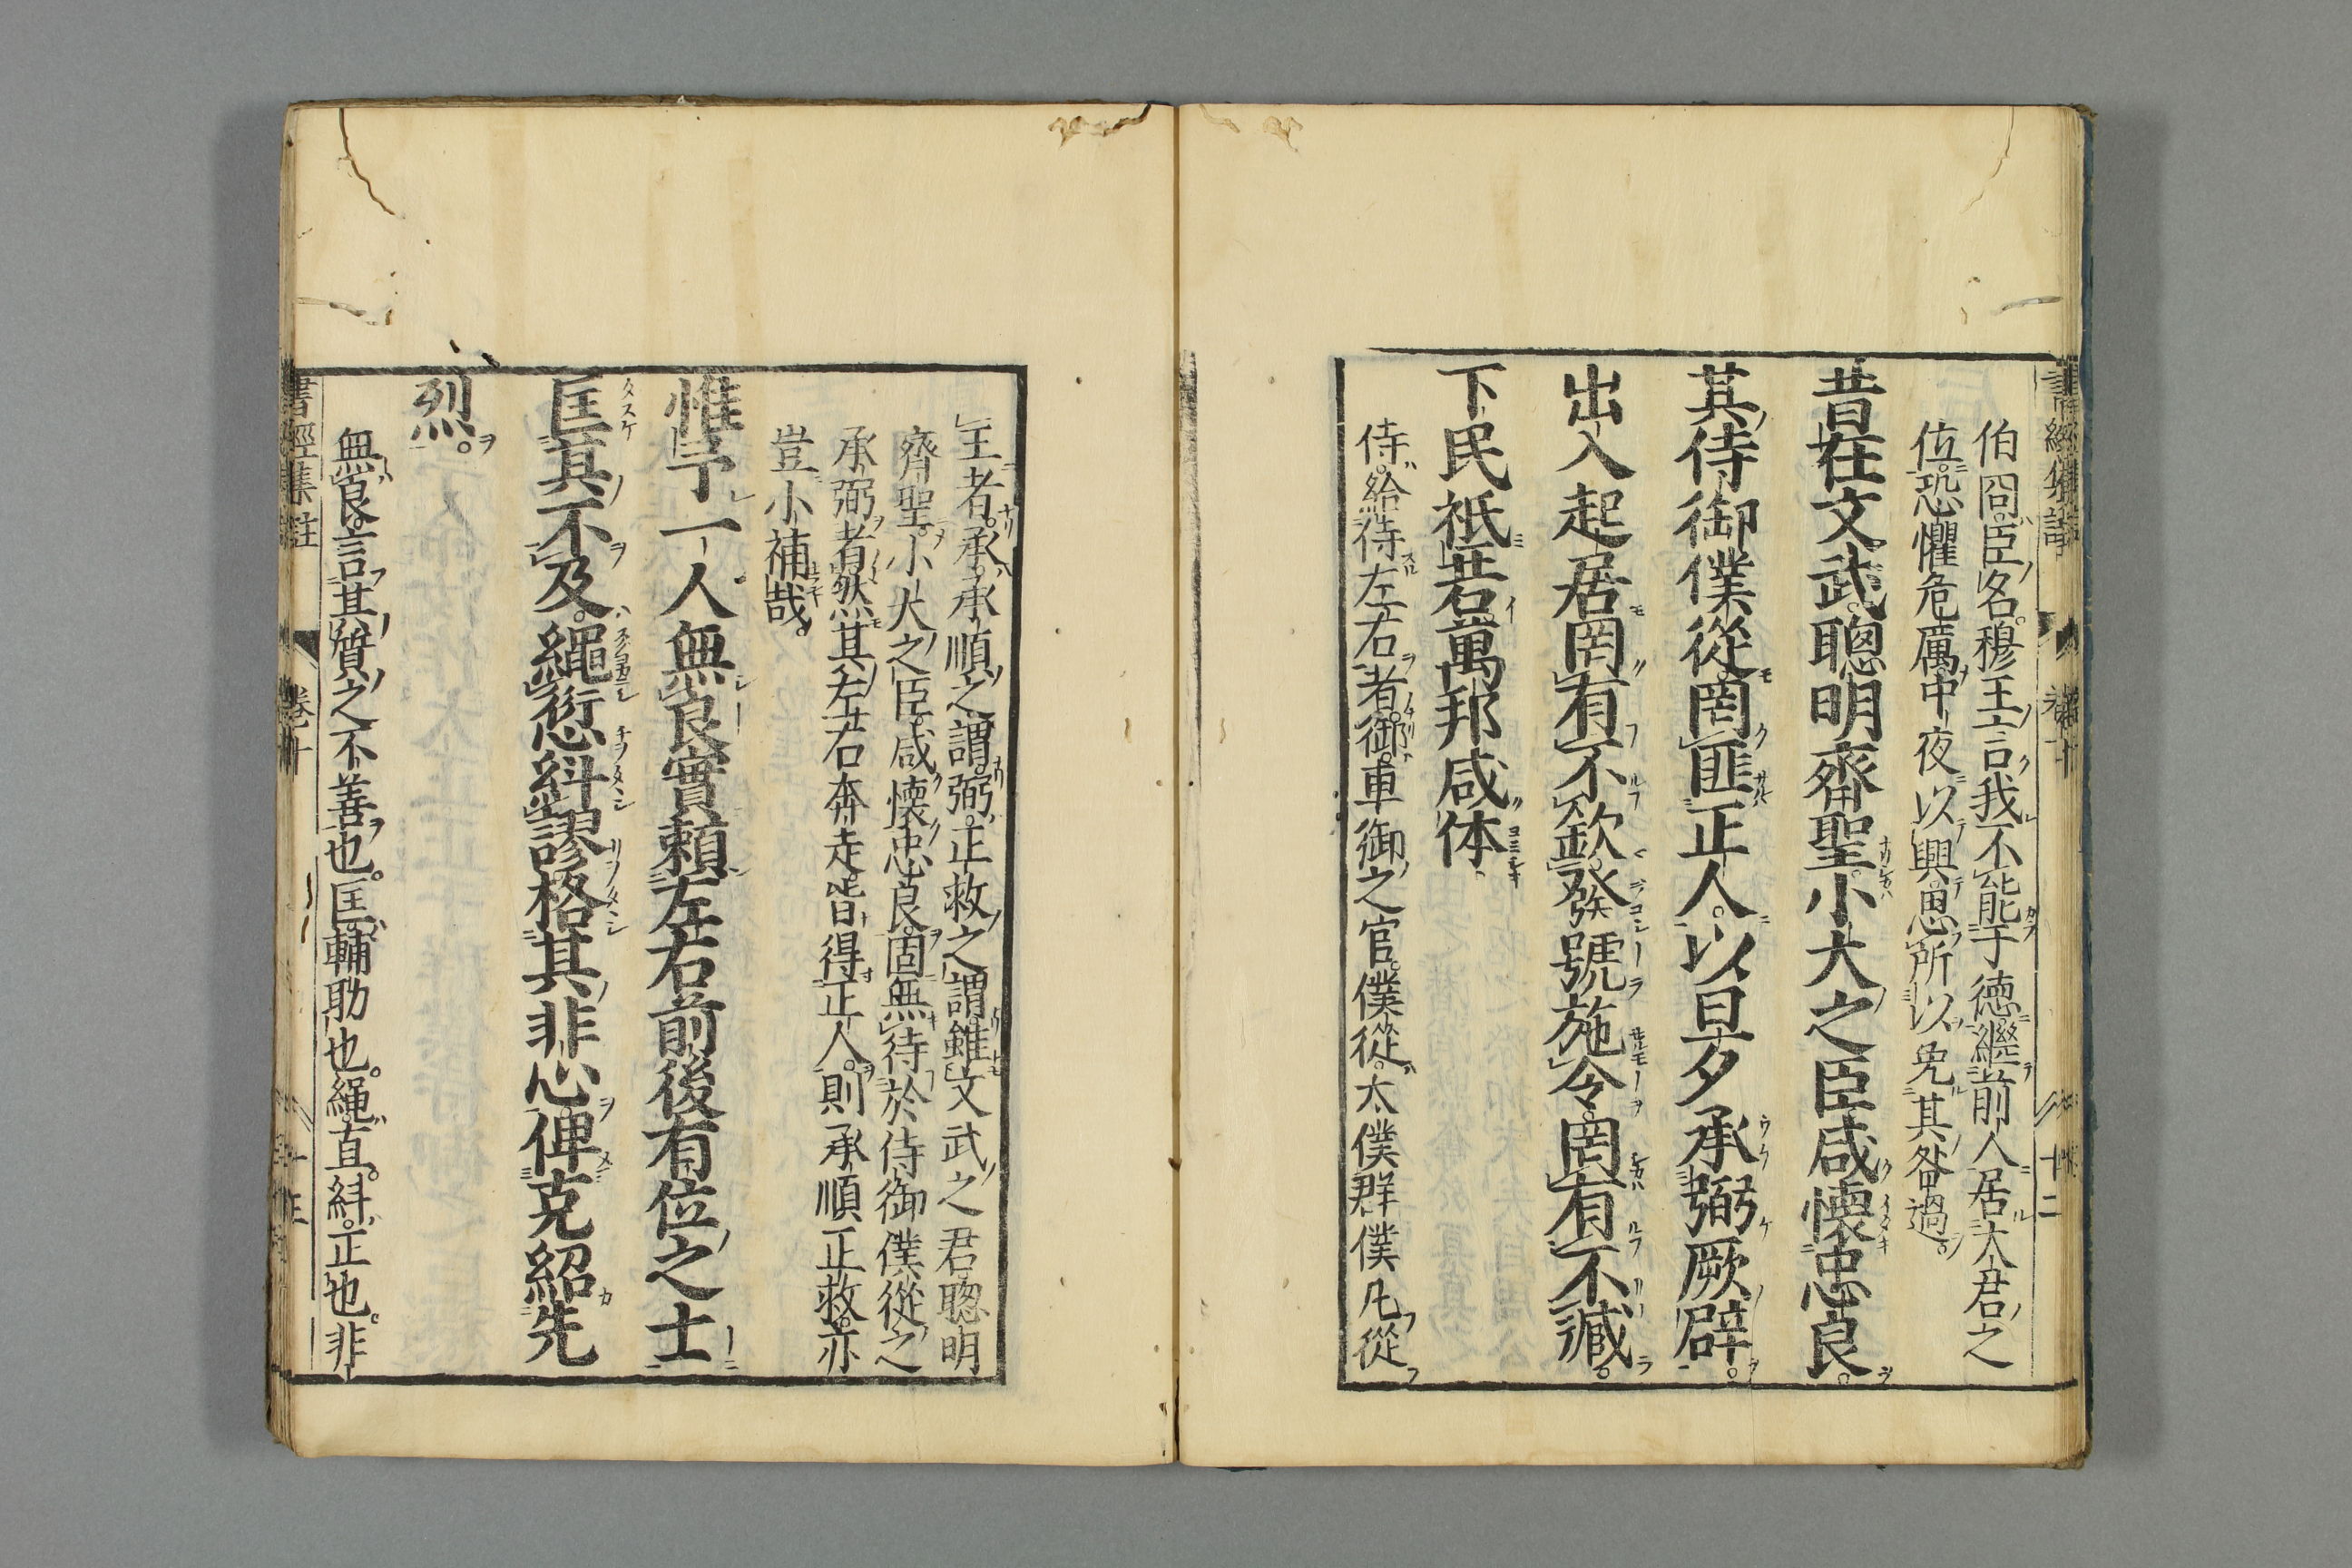 伯冏臣名。穆王言我不能于德。繼前人居大君之
位。恐懼危厲中夜以興思所以免其咎過。
昔在文武聰明齊聖小大之臣咸懷忠良。
其侍御僕從罔匪正人。以旦夕承弼厥辟。
出入起居罔有不欽。發號施令罔有不臧。
下民祗若萬邦咸休。
侍。給侍左右者。御。車御之官。僕從。太僕群僕凡從
王者。承。承順之謂。弼。正救之謂。雖文武之君聰明
齊聖。小大之臣。咸懷忠良。固無待於侍御僕從之
承弼者。然其左右奔走。皆得正人。則承順正救。亦
豈小補哉。
惟予一人無良實賴左右前後有位之士
匡其不及。繩愆糾謬格其非心俾克紹先
烈。
無良。言其質之不善也。匡。輔助也。繩。直。糾。正也。非
書經集註
卷十
十二